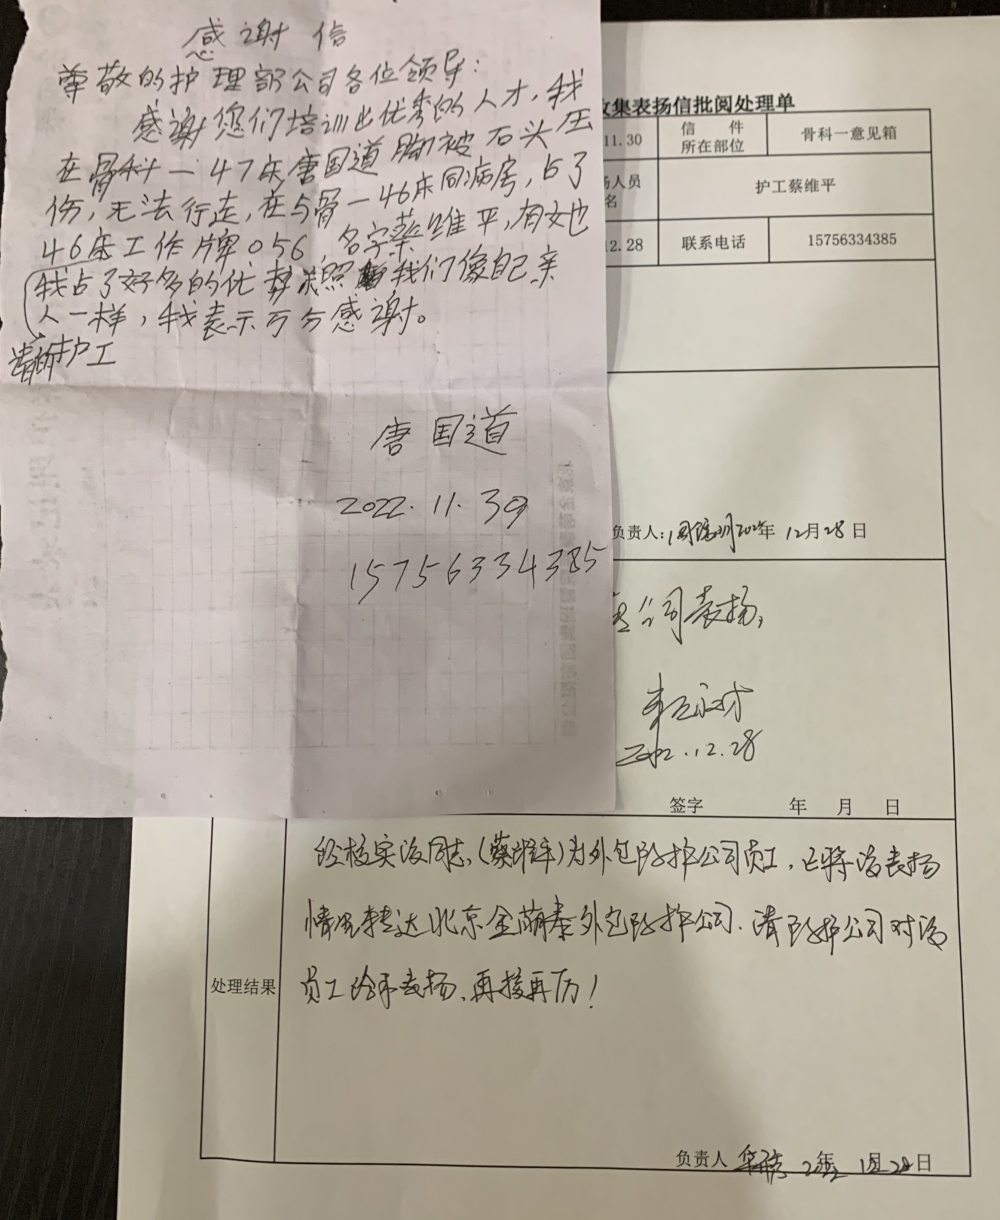 感谢信
尊敬的护理部公司各位领导：
感谢您们培训出优秀的人才，我
在骨科一47床唐国道胸被石头压
伤，无法行走，在与骨一46床同病房，占了
46床工作牌056，名字蔡维平，有她
我占了好多的优势照我们像自己亲
人一样，我表示万分感谢。
请的护工
唐国道
2022.11.30
15756334385
收集表扬信批阅处理单
11.30
信 件
所在部位
骨科一意见箱
扬人员
名
护工蔡维平
12.28
联系电话
15756334385
负责人： 年 12月28日
公司表扬，
2022.12.28
签字 年 月 日
处理结果
经核实该同志，（蔡维平）为外包陪护公司员工，已将该表扬
情况转达北京金萌泰外包陪护公司．请陪护公司对该
员工给予表扬、再接再厉！
负责人 2022年 12月28日